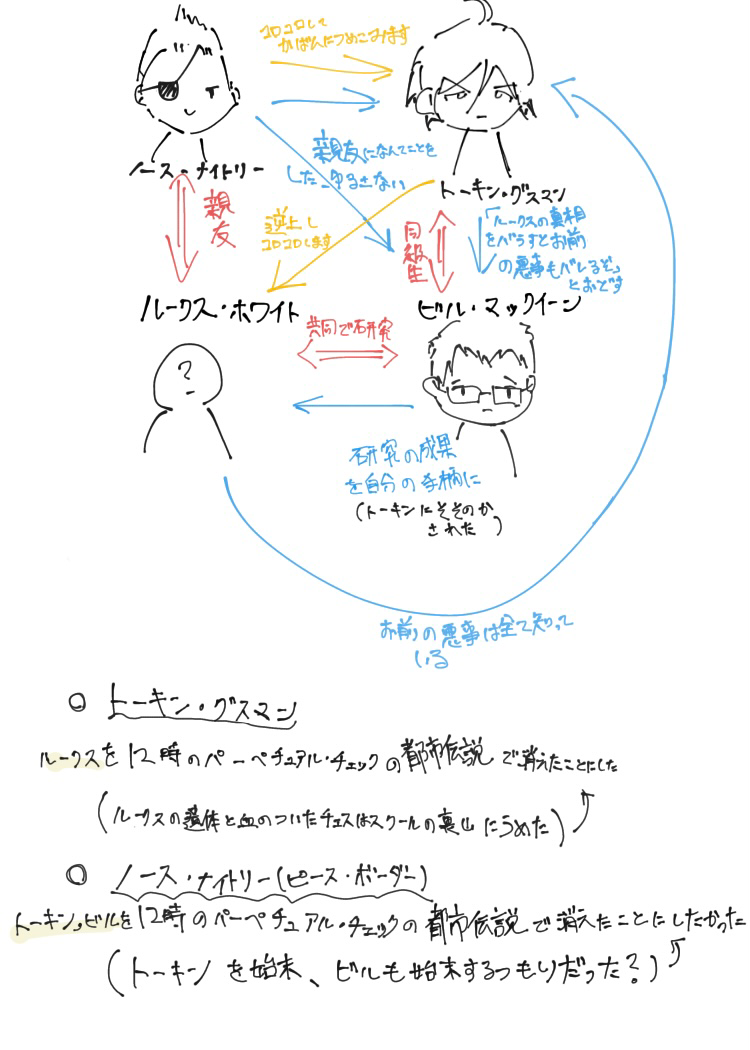 コロコロして
かばんにつめこみます
親友になんてことを
した、ゆるさない
ノース・ナイトリー
トーキン・グスマン
親友
逆上し
コロコロします
同級生
「ルークスの真相
をバラすとお前
の悪事もバレるぞ」
とおどす
ルークス・ホワイト
ビル・マックイーン
共同で研究
?
研究の成果
を自分の手柄に
(トーキンにそそのか
された)
お前の悪事は全て知って
いる
○ トーキン・グスマン
ルークスを12時のパーペチュアル・チェックの都市伝説で消えたことにした
(ルークスの遺体と血のついたチェスはスクールの裏山にうめた)
◎ ノース・ナイトリー(ピース・ボーダー)
トーキン、ビルを12時のパーペチュアル・チェックの都市伝説で消えたことにしたかった
(トーキンを始末、ビルも始末するつもりだった?)